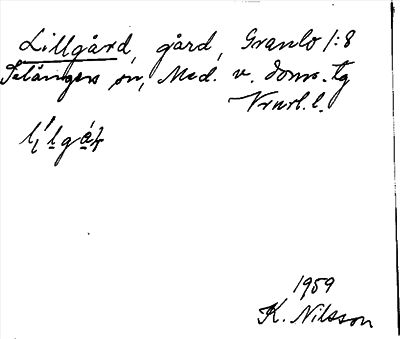 Lillgård, gård, Granlo 1:8
Selångers sn, Med. v. doms. tg
Vrnrl. l.
1959
K. Nilsson